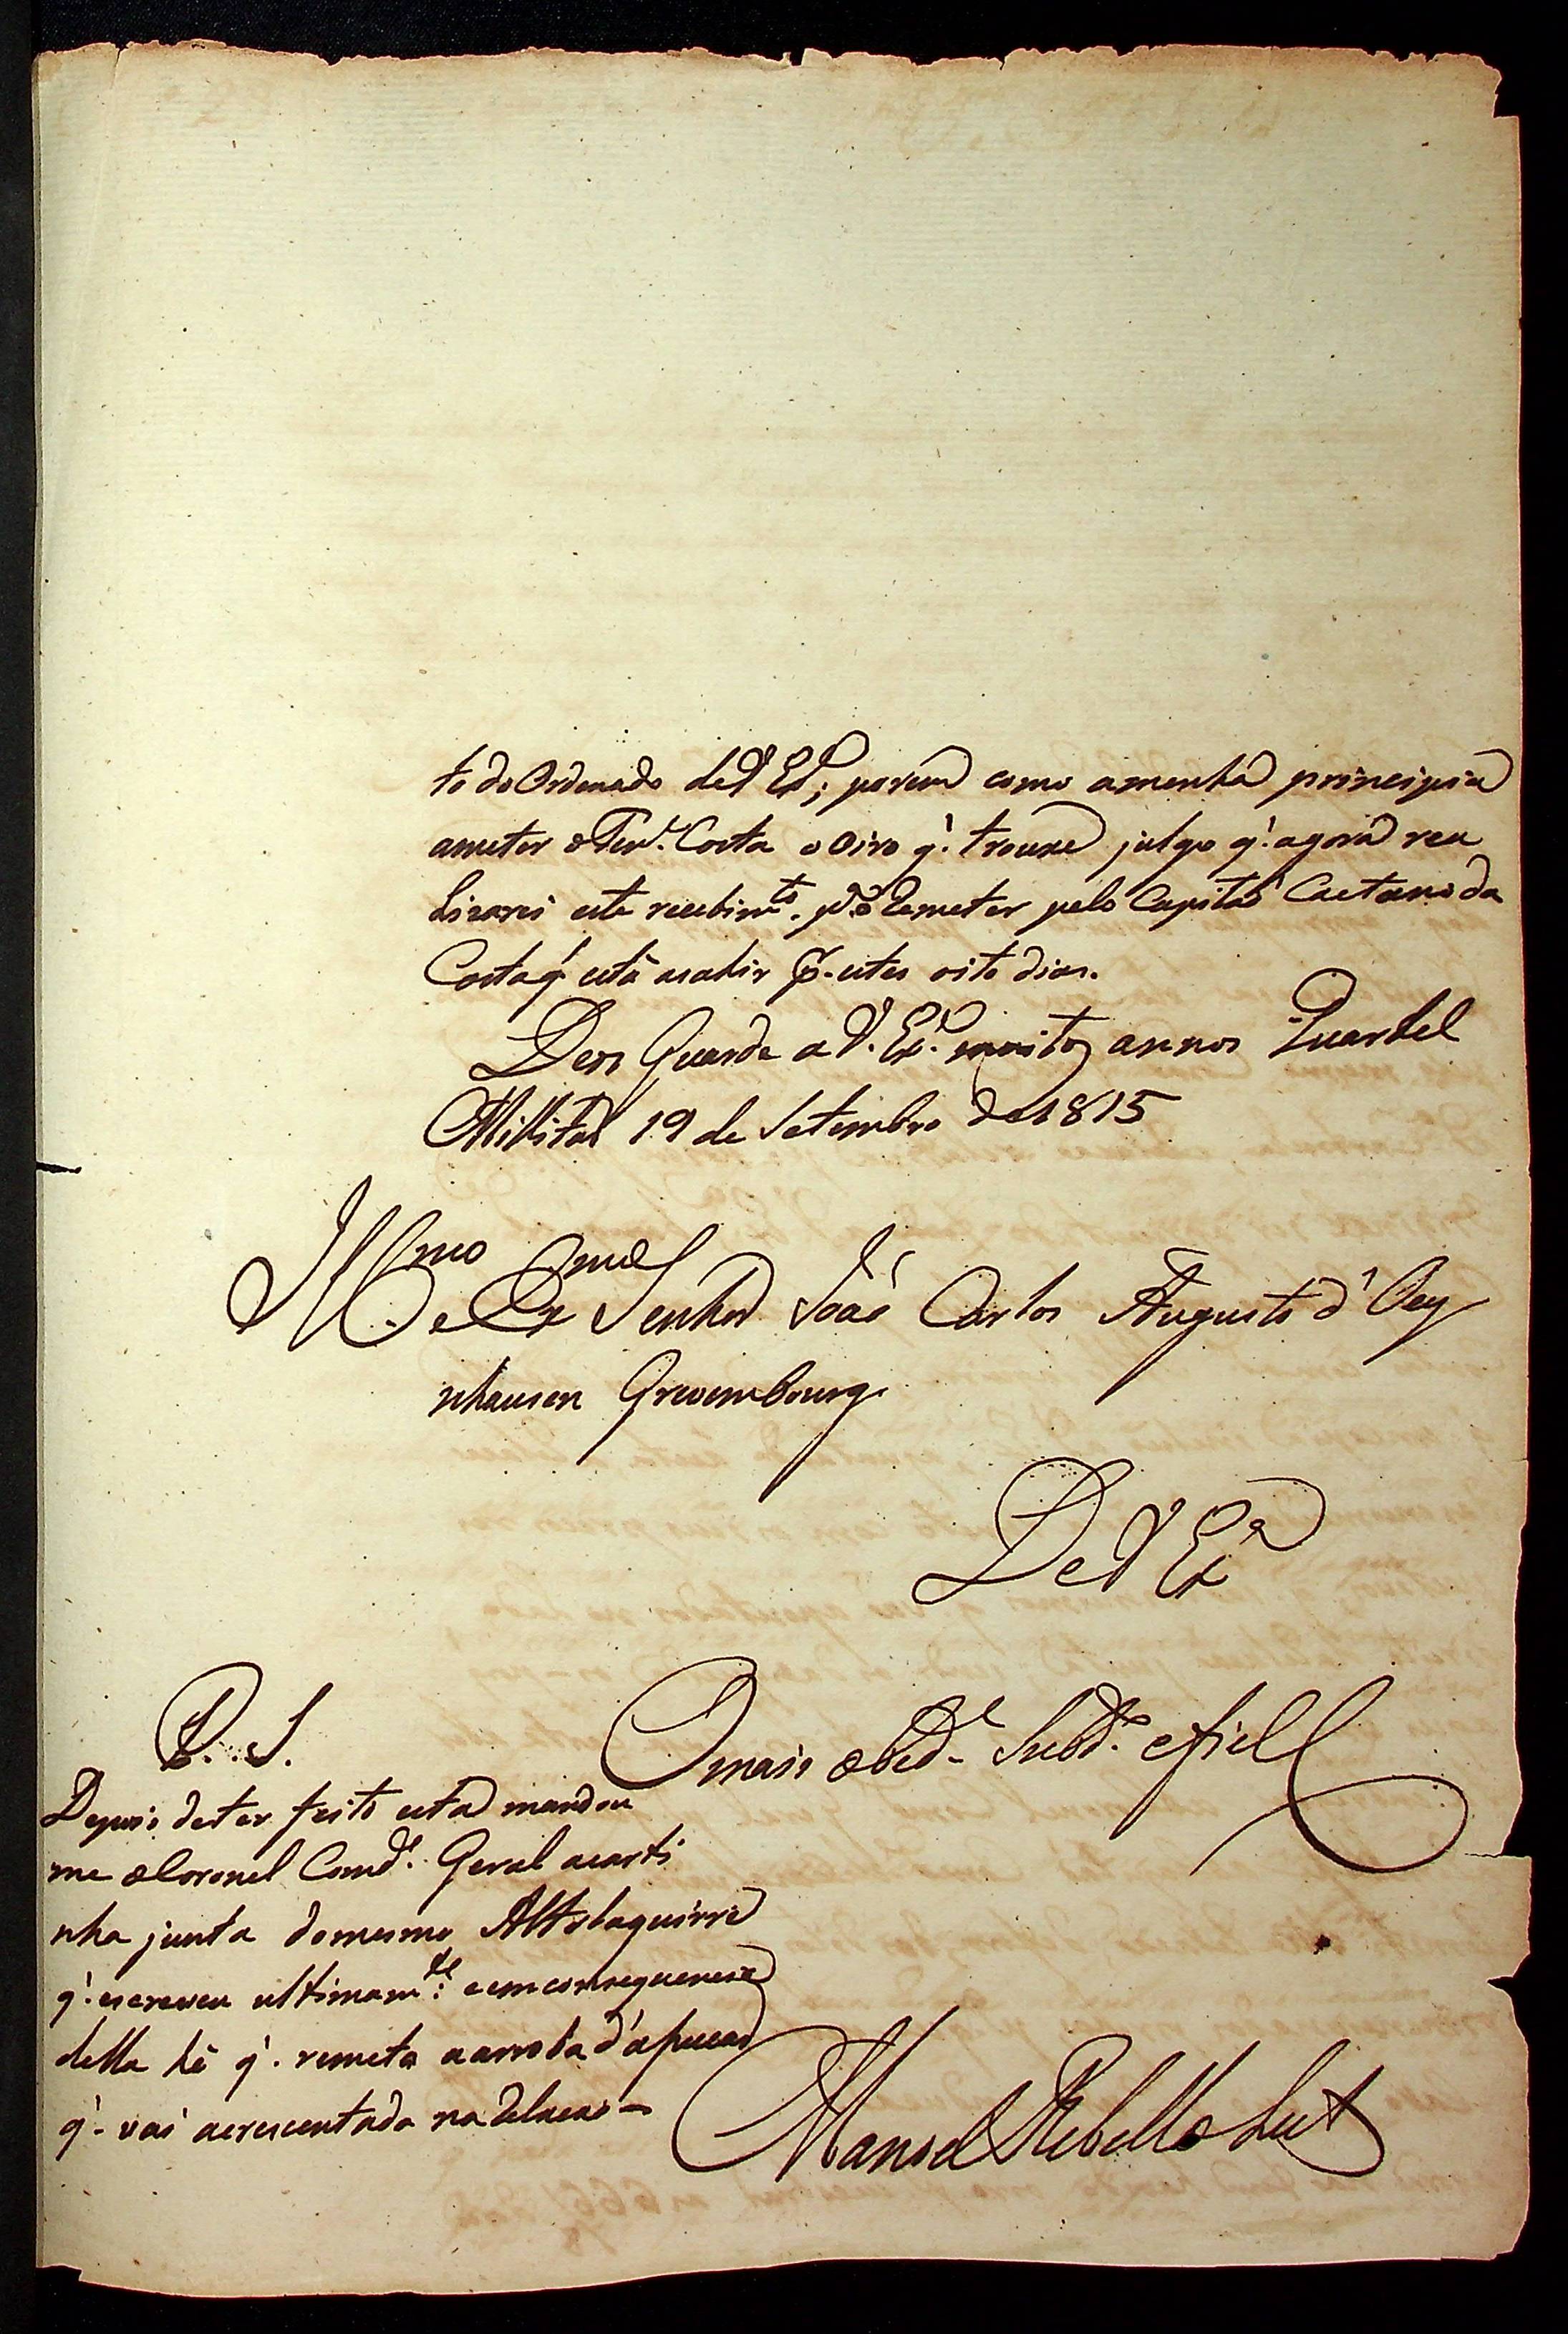 to do Ordenado de V Exª; porem como amenhã principia
ameter o Ten.e Costa o Oiro q' trouxe julgo q' agora rea
lizarei este recebim.to p.ª o Remeter pelo Capitaõ Caetano da
Costa q' está asahir p.r estes oito dias.
Deos Guarde a V. Ex.ª muitos annos Quartel
Millitar 19 de Setembro de 1815
Ill.mo e Ex.mo Senhor Joaõ Carlos Augusto d' Oey
nhausen Grevembourg.
De V Ex.ª
P. S.
O mais obed.e Subd.to e fiel
Depois de ter feito esta mandou
me o Coronel Comd.e Geral acarti
nha junta do mesmo
q' escreveu ultimam.te e em consequencia
della hê q' remeto a arroba d'
q' vai acrescentada na Relacaõ
Manoel Rebello Leite